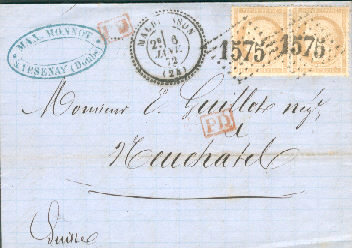 MAX. MONNOT
ARSENAY (Doubs)
PD
2E 6
JANV.
72
(24)
1575
1575
Monsieur E. Guillot, négt
à
Neuchatel
PD
Suisse